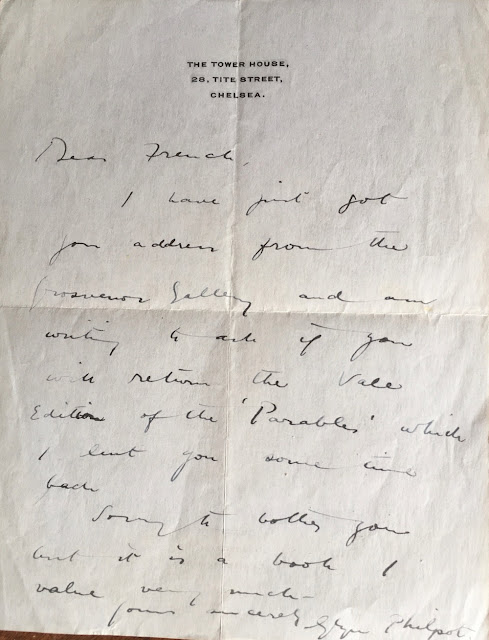 THE TOWER HOUSE,
28, TITE STREET,
CHELSEA.
Dear French,
I have just got
your address from the
Grosvenor Gallery and am
writing to ask if you
will return the Vale
Edition of the 'Parables' which
I lent you some time
back
Sorry to bother you
but it is a book I
value very much
yours sincerely Glyn Philpot